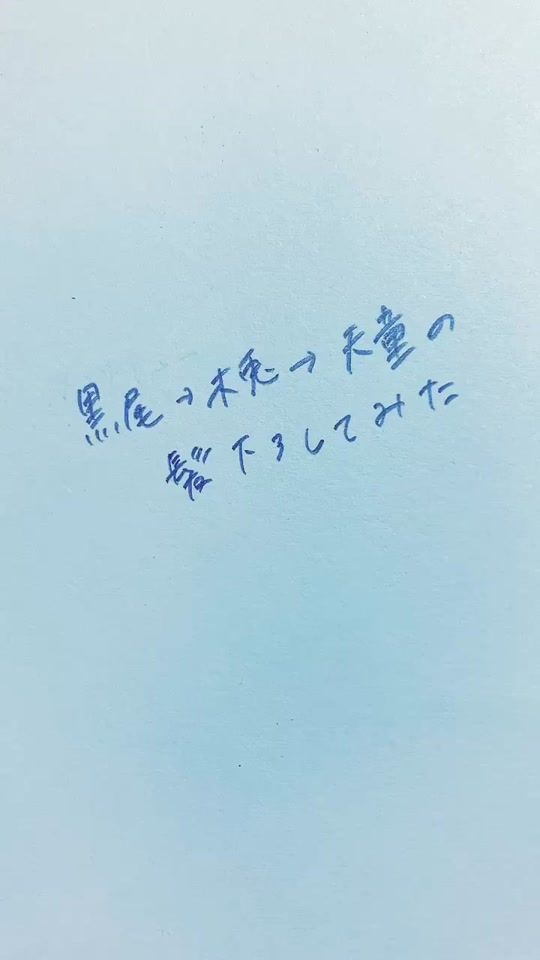 黒尾→木兎→天童の
髪下ろしてみた